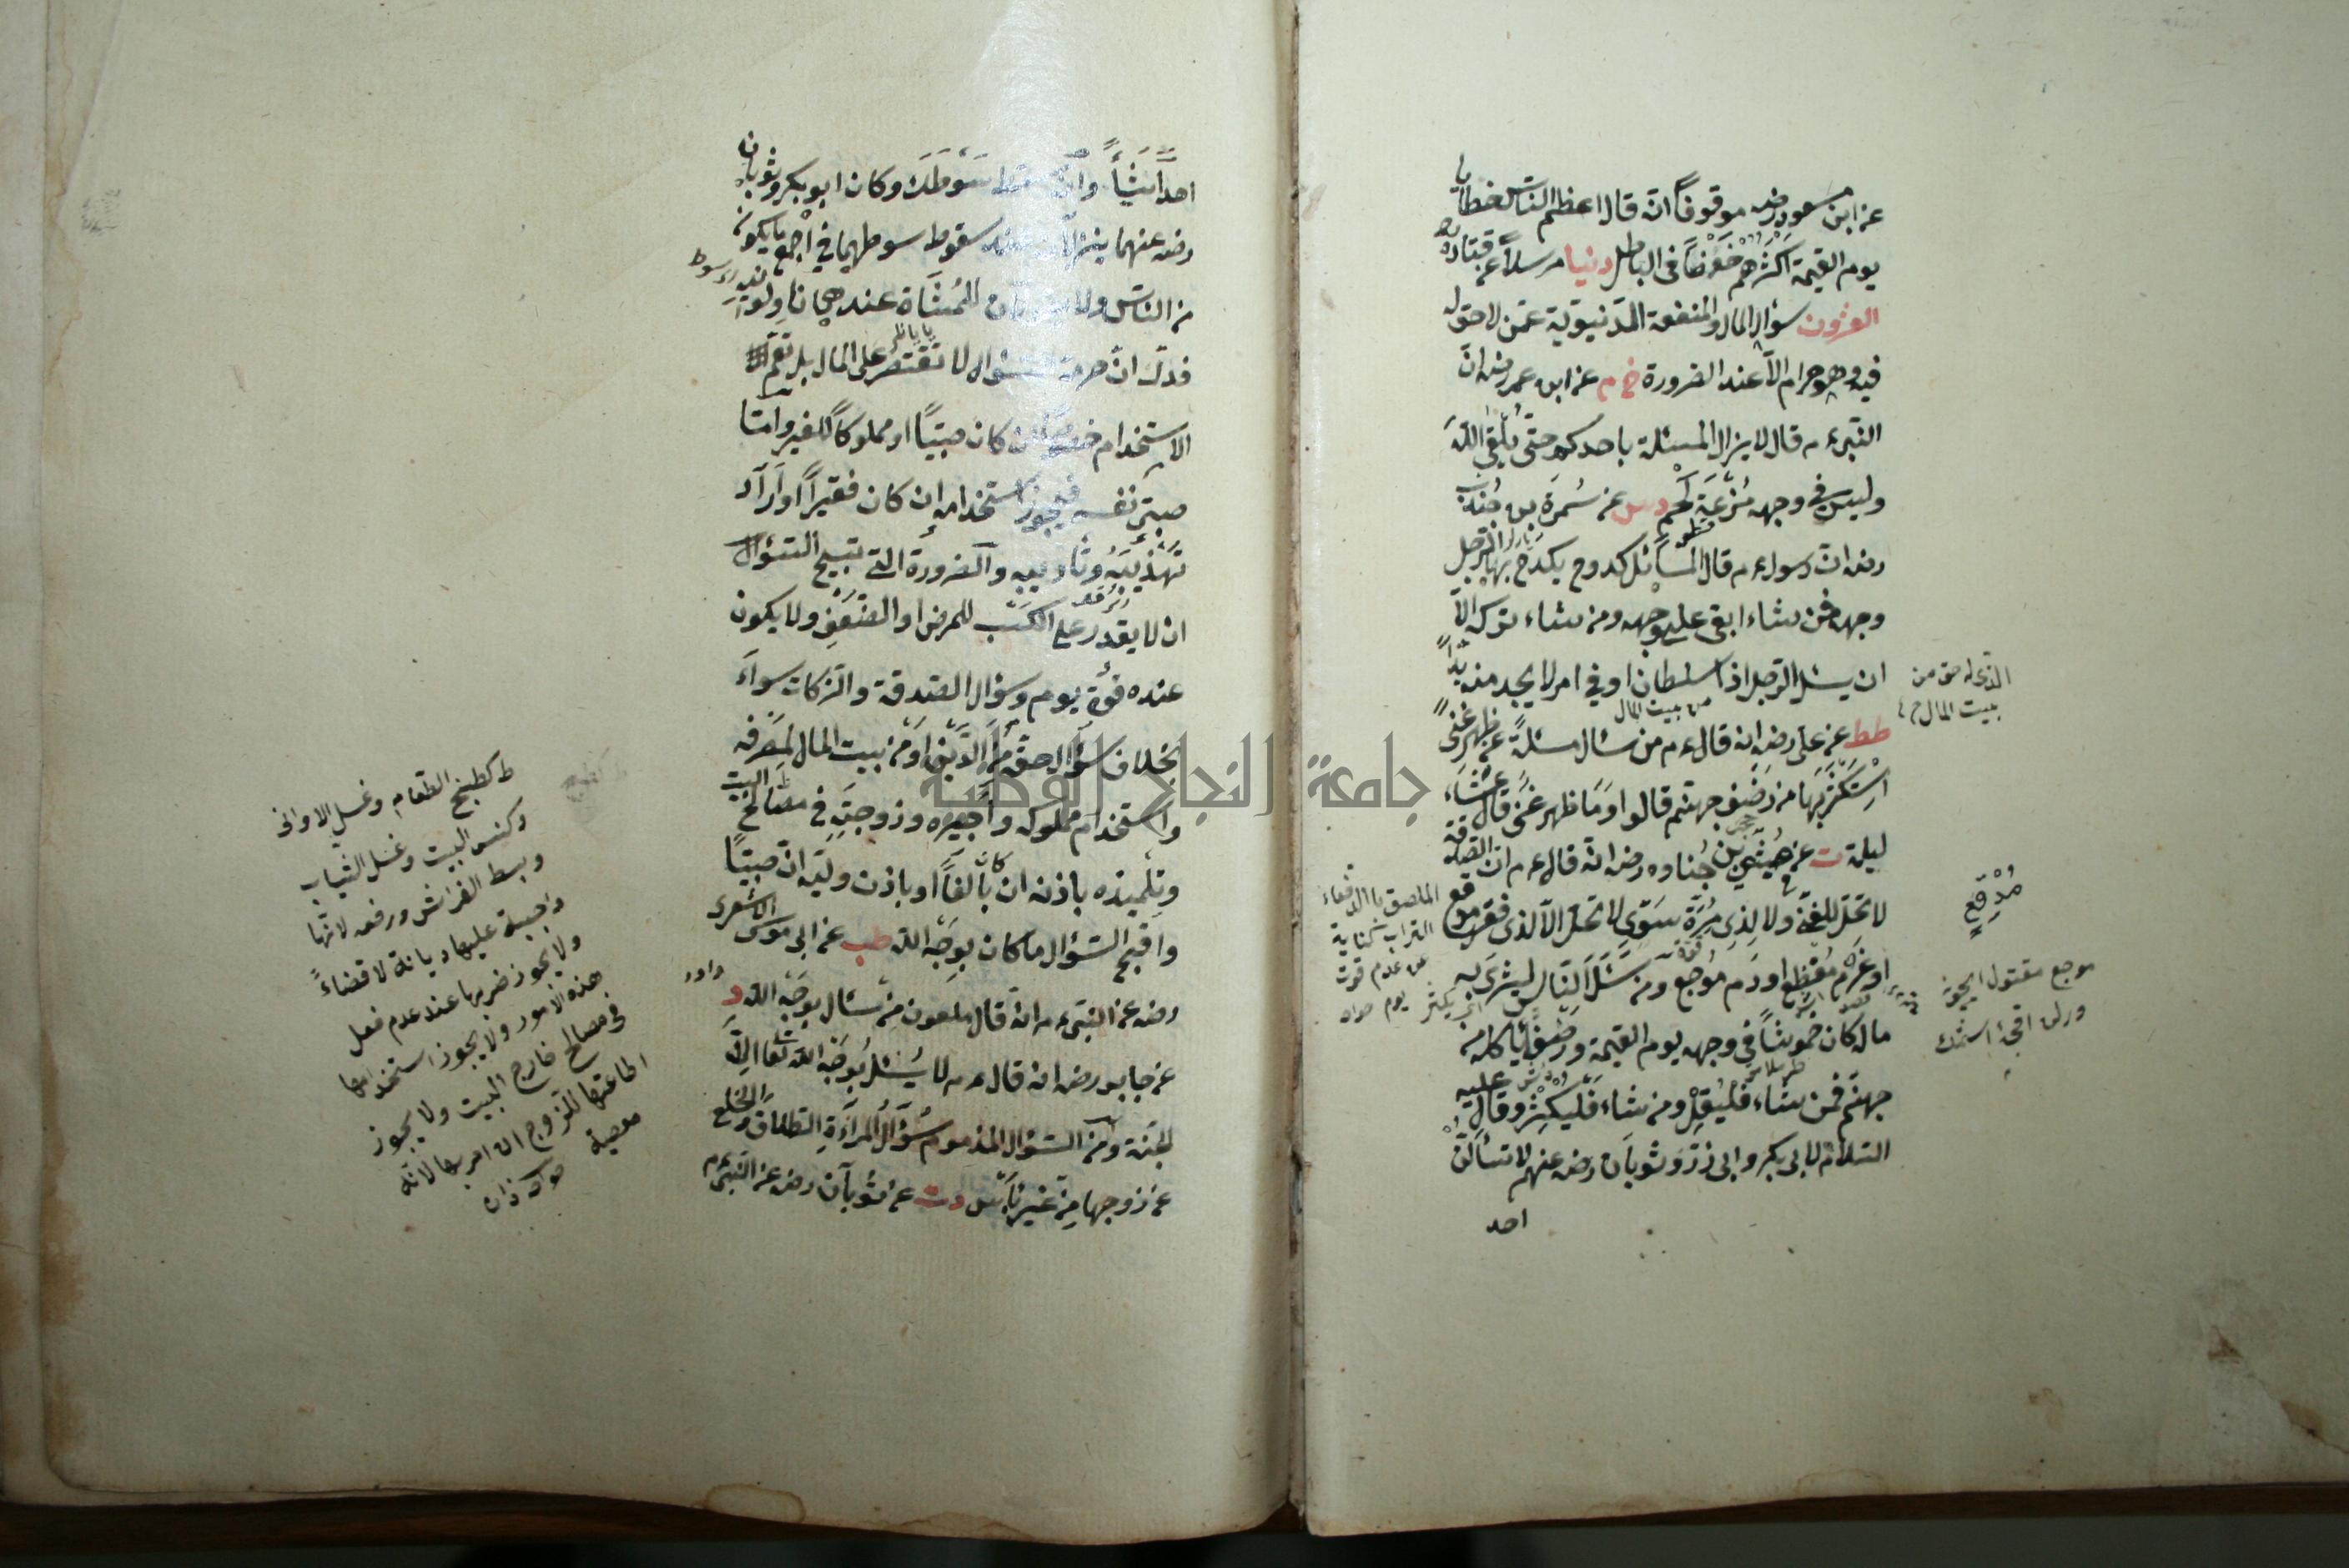 عن ابن مسعود رضه موقوفاً انه قال اعظم الناس خطايا
يوم القيمة اكثرهم خوضاً فى الباطل دنيا مرسلاً عن قتادة
العشرون سؤال المال والمنفعة الدنيوية عمن لا حق له
فيه وهو حرام الا عند الضرورة خ م عن ابن عمر رضه ان
النبى ء م قال لا يزال المسئلة باحدكم حتى يلقى الله
وليس فى وجهه مزعة لحم دس عن سمرة بن جندب
رضه ان رسول ء م قال المسائل كدوح يكدح بها الرجل
وجهه فمن شاء ابقى على وجهه ومن شاء تركه الا
ان يسئل الرجل ذا سلطان او فى امر لا يجد منه بداً
الذى له حق من
بيت المال
من بيت المال
طط عن على رضه انه قال ء م من سئال مسئلة عن ظهر غنى
استكثر بها من رضف جهنم قالوا وما ظهر غنى قال عشاء
ليلة ت عن حبشى بن جناده رضه انه قال ء م ان الصدقة
لا تحل للغنى ولا لذى مرة سوى لا تحل الا لذى فقر مدقع
مدقع
الملصق بالدقعاء
التراب كناية
عن عدم قوت
يوم
او غرم مفظع او دم موجع ومن سئل الناس ليثرى به
ماله كان خموشاً فى وجهه يوم القيمة ورضفاً ياكله من
جهنم فمن شاء فليقل ومن شاء فليكثر وقال عليه
السلام لابى بكر وابى ذر وثوبان رضه عنهم لا تسألن
احد
احداً شيأ وان سقط سوطك وكان ابو بكر وثوبان
رضه عنهما ينزلان عند سقوط سوطهما فى اجمع ما يكون
من الناس ولا يسئلان للمشاة عندهما ناولونيه
فدل ان حرمة السؤال لا تقتصر على المال بل تعم
الاستخدام خصوصاً ان كان صبياً او مملوكاً للغير واما
صبى نفسه فيجوز استخدامه ان كان فقيراً او اراد
تهذيبه وتأديبه والضرورة التى تبيح السؤال
ان لا يقدر على الكسب للمرض او الضعف ولا يكون
عنده قوت يوم وسؤال الصدقة والزكات سواء
بخلاف سؤال حقه من الدين او من بيت المال لمصرفه
واستخدام مملوكه واجيره وزوجته فى مصالح البيت
وتلميذه باذنه ان كان بالغاً او باذن وليه ان صبياً
واقبح السؤال ما كان بوجه الله طب عن ابى موسى الاشعرى
رضه عن النبى ء م انه قال ملعون من سئال بوجه الله د
عن جابر رضه انه قال ء م لا يسئل بوجه الله تعالى الا
الجنة ومن السؤال المذموم سؤال المرأة الطلاق والخلع
عن زوجها من غير بأس دت عن ثوبان رضه عن النبى ء م
ط كطبخ الطعام وغسل الاوانى
وكنس البيت وغسل الثياب
وبسط الفراش ورفعه لانها
واجبة عليها ديانة لا قضاءً
ولا يجوز ضربها عند عدم فعل
هذه الامور ولا يجوز استخدامها
فى مصالح خارج البيت ولا يجوز
اطاعتها للزوج ان امر بها لانه
معصية